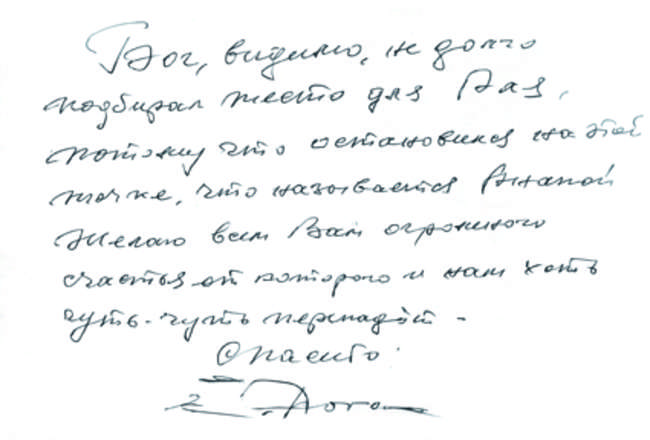 Бог, видимо, не долго
подбирал место для Вас,
потому что остановился на этой
точке, что называется Анапой
Желаю всем Вам огромного
счастья от которого и нам хоть
чуть-чуть перепадёт -
Спасибо.
Е. Дога